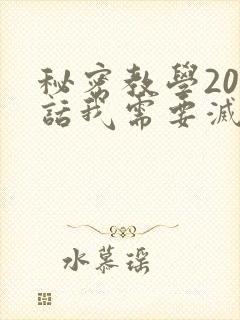 秘密教學20
話我需要滅
水慕瑶